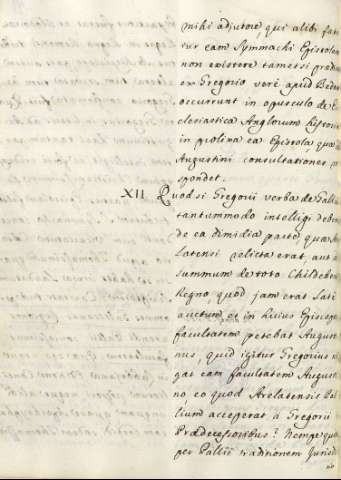 mihi adjutore, qui alibi fate
tur eam Symmachi Epistolam
non existere tametsi
ex Gregorio verè apud Bedam
occurrunt in opusculo de E
clesiastica Anglorum Histori
in prolixa ea Epistola qua
Augustini consultationer
spondet.
XII Quod si Gregorii verba de Galli
tantummodo intelligi debe
de ea dimidia parte, quæ
latensi relicta erat, aut a
summum de toto Childeber
Regno, quod jam erat lati
auctum et in huius Episcop
facultatem petebat Augus
nus, quid igitur Gregorius n
gat eam facultatem August
no, eo quod Arelatensis Pal
lium acceperat à Gregorii
Prædecessoribus? Nempe qu
per Pallii traditionem Jurisd